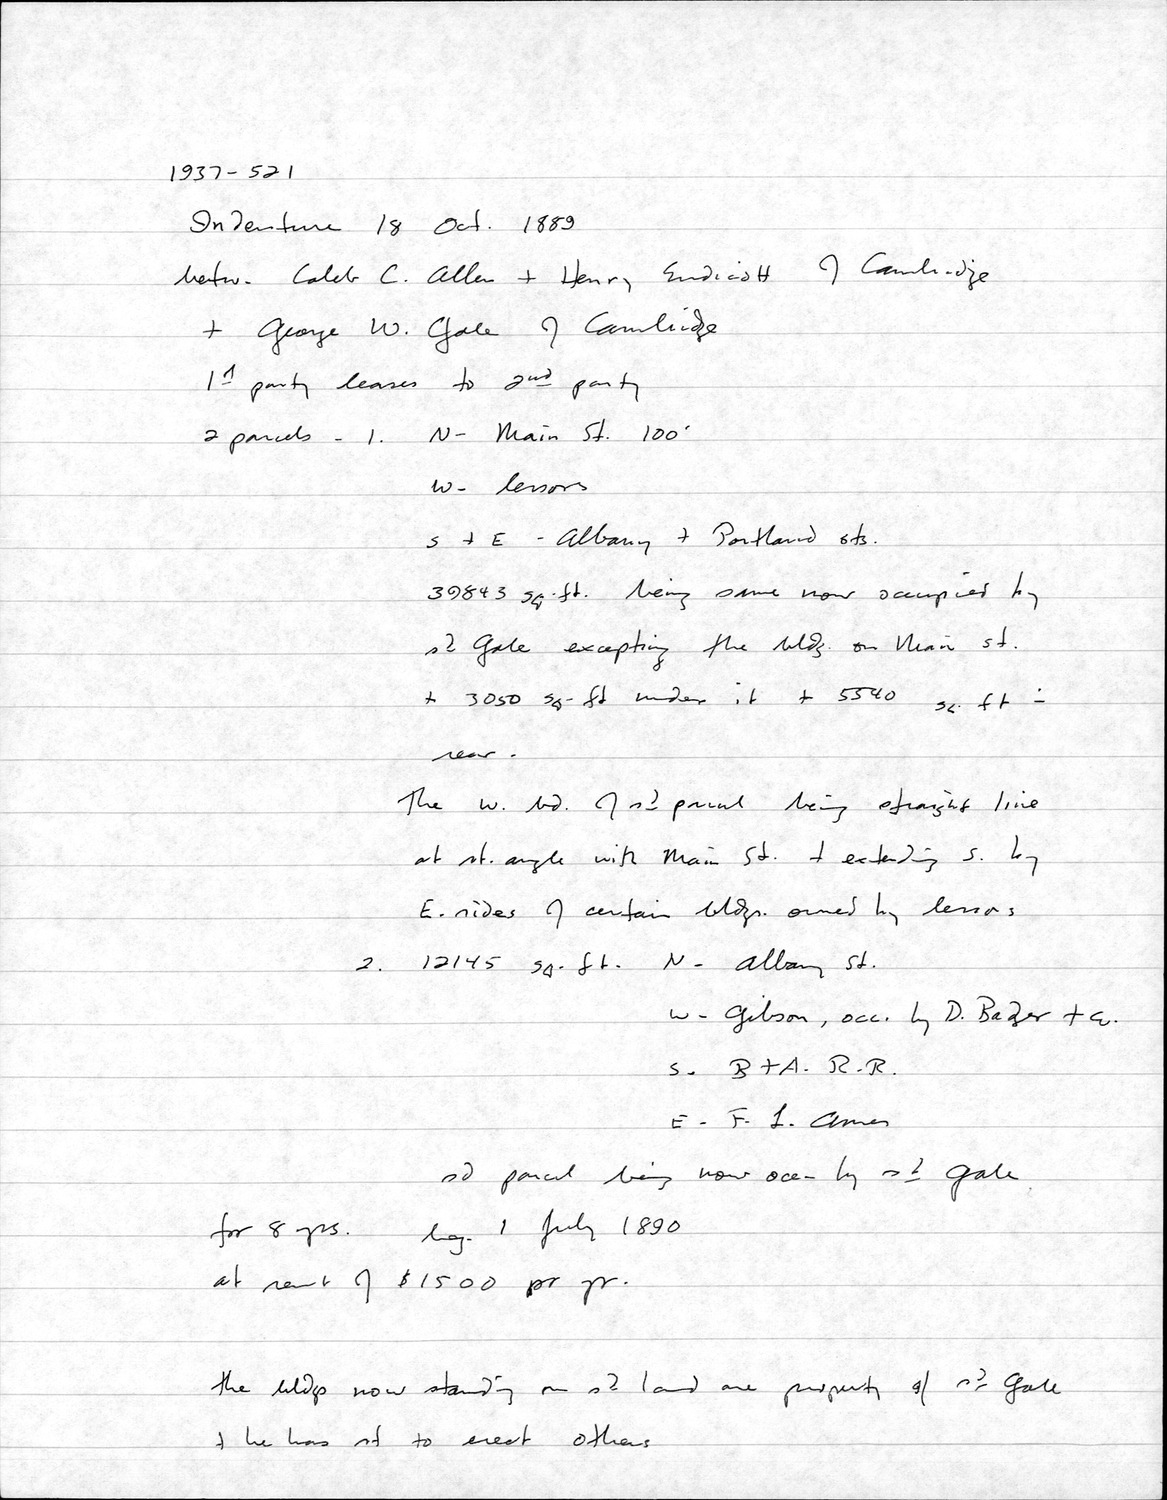 1937-521
Indenture 18 Oct. 1889
betw. Caleb C. Allen + Henry Endicott of Cambridge
+ George W. Gale of Cambridge
1st party leases to 2nd party
2 parcels - 1. N- Main St. 100'
W- lessors
S + E - Albany + Portland sts.
39843 sq. ft. being same now occupied by
sd Gale excepting the bldg. on Main st.
+ 3050 sq-ft under it + 5540 sq. ft in
rear.
The w. bd. of sd parcel being straight line
at rt. angle with Main St. + extending s. by
E. sides of certain bldgs. owned by lessors
2. 12145 sq. ft. N- Albany St.
W- Gibson, occ. by D. Bazer + co.
S. B + A. R.R.
E - F. L. Ames
sd parcel being now occ- by sd Gale
for 8 yrs. beg. 1 July 1890
at rent of $1500 pr yr.
the bldgs now standing on sd land are property of sd Gale
+ he has rt to erect others